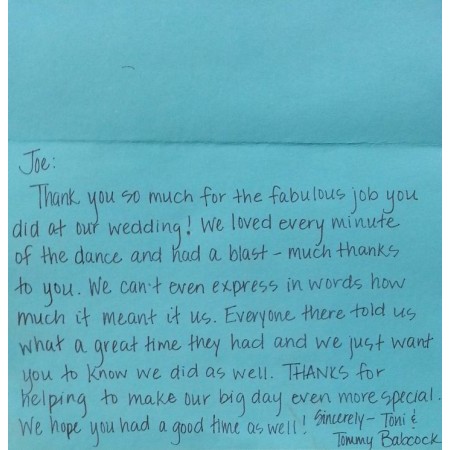 Joe:
Thank you so much for the fabulous job you
did at our wedding! We loved every minute
of the dance and had a blast - much thanks
to you. We can't even express in words how
much it meant it us. Everyone there told us
what a great time they had and we just want
you to know we did as well. THANKS for
helping to make our big day even more special.
We hope you had a good time as well! Sincerely - Toni &
Tommy Babcock